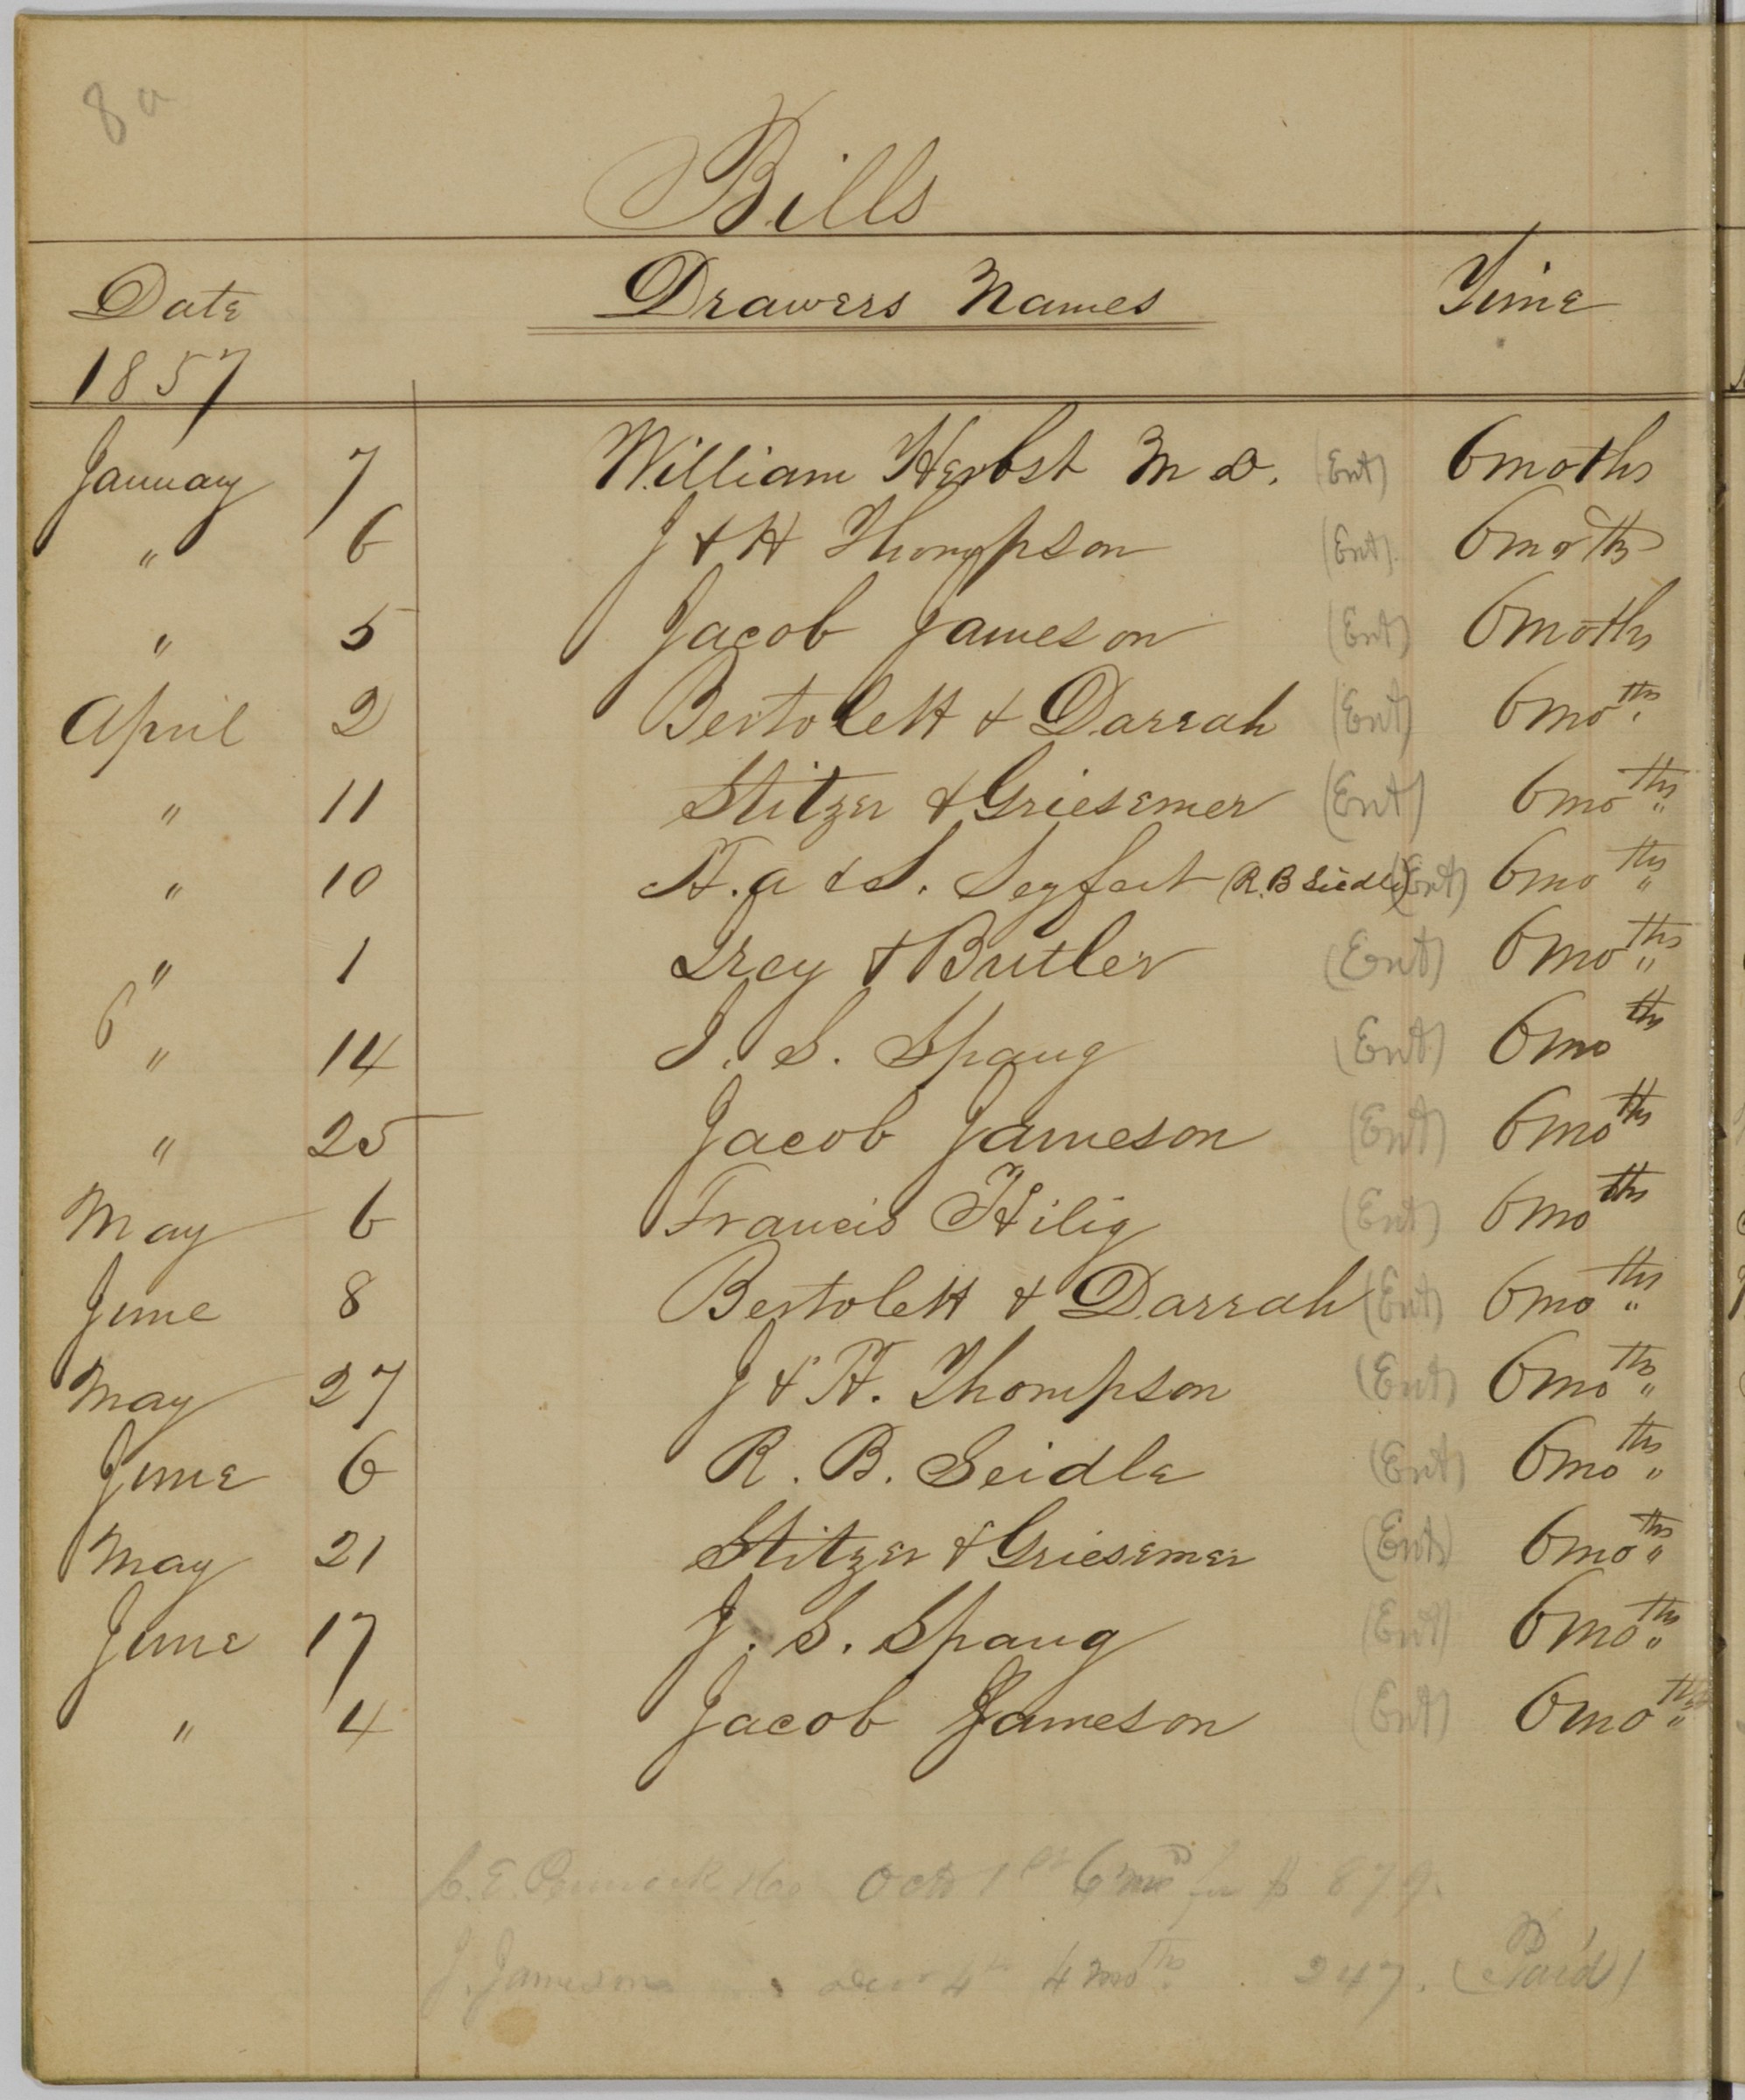 8a
Bills
Date Drawers Names Time
1857
January 7 William Herbst M D. (Ent) 6moths
" 6 J & H Thompson (Ent). 6moths
" 5 Jacob Jameson (Ent) 6moths
April 2 Bertolett & Darrah (Ent) 6moths.
" 11 Stitzer & Griesemer (Ent) 6moths"
" 10 H. a & S. Seyfert (R. B Seidle) (Ent) 6moths"
" 1 Irey & Butler (Ent) 6moths"
6
" 14 J. S. Spaug (Ent) 6moths
" 25 Jacob Jameson (Ent) 6moths
May 6 Francis Hilig (Ent) 6moths
June 8 Bertolett & Darrah (Ent) 6moths"
May 27 J & H. Thompson (Ent) 6moths"
June 6 R. B. Seidle (Ent) 6moths"
May 21 Stitzer & Griesemer (Ent) 6moths"
June 17 J. S. Spaug (Ent) 6moths"
" 4 Jacob Jameson (Ent) 6moths"
C. E. Oct 1st 6 mos for $ 879.
J. Jameson 4th 4 moths. 247. (Paid)